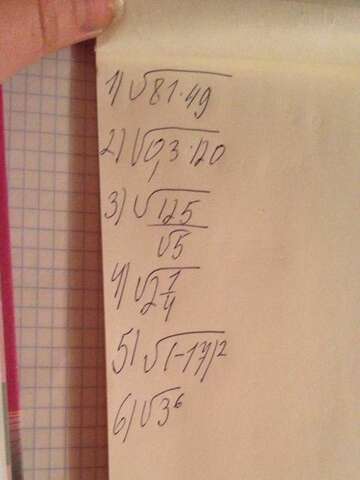 1) √81·49
2) √0,3·120
3) √125
√5
4) √2 1/4
5) √(-17)²
6) √3⁶